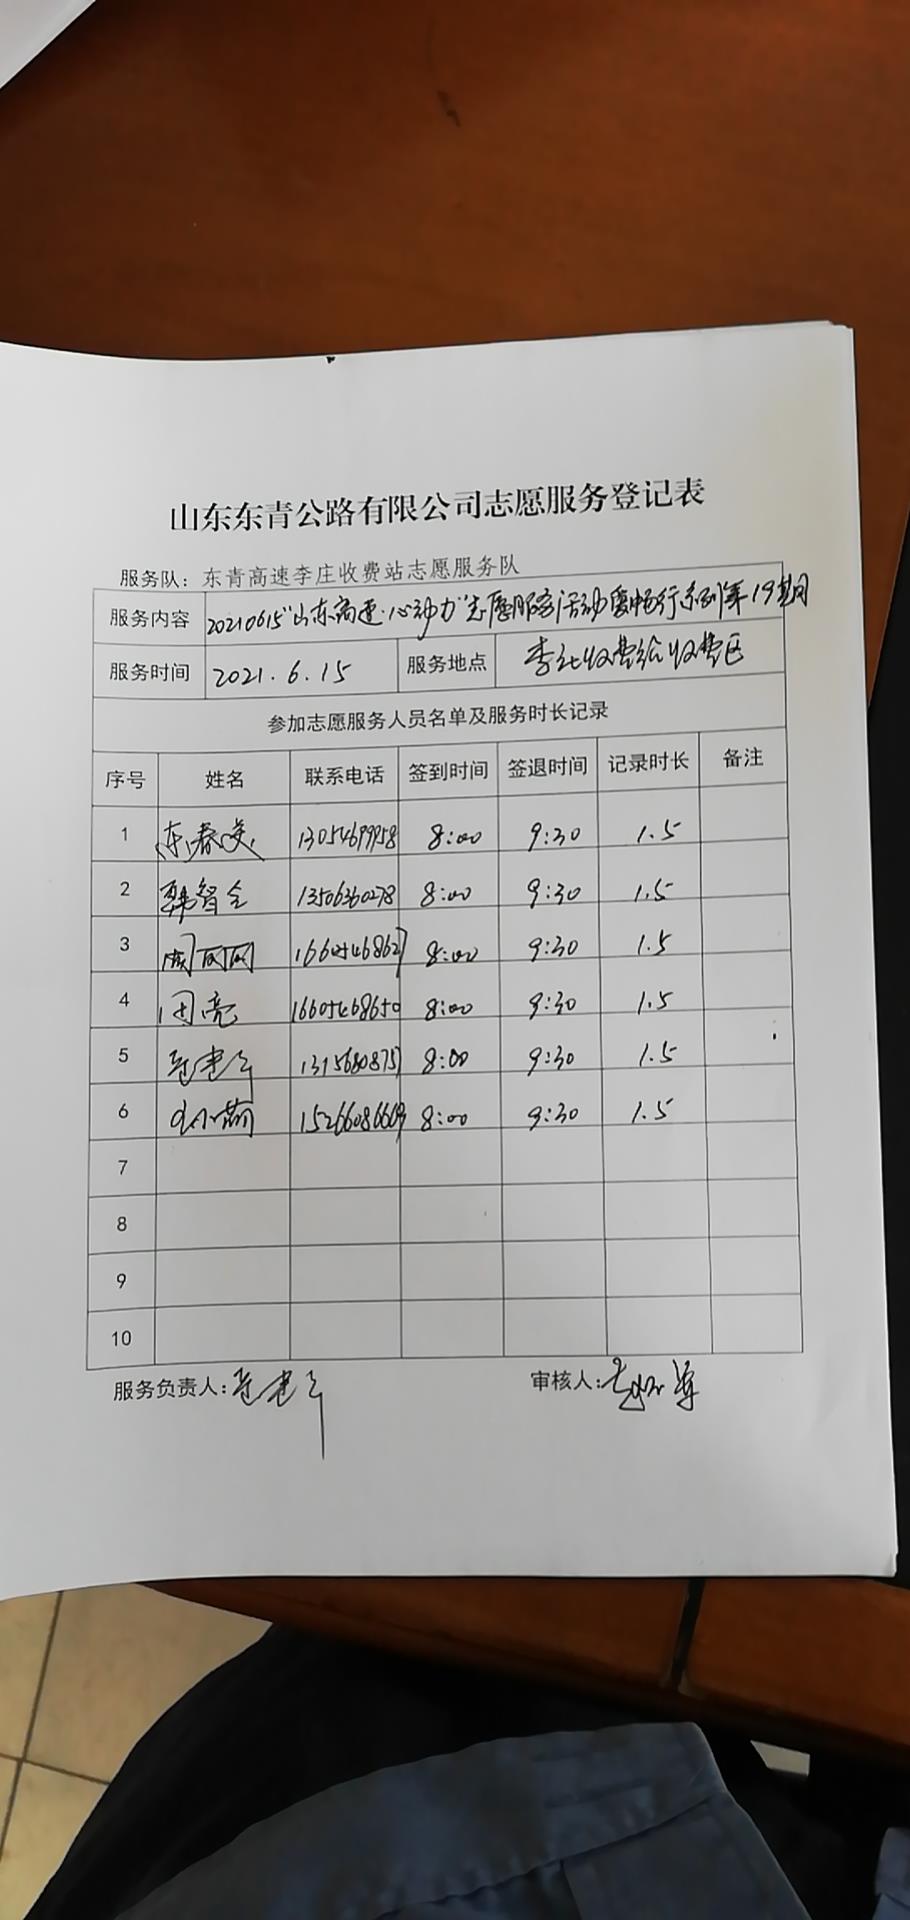 山东东青公路有限公司志愿服务登记表
服务队：东青高速李庄收费站志愿服务队
服务内容 20210615“山东高速·心动力”志愿服务活动暖畅行系列第19期
服务时间 2021.6.15 服务地点 收费站收费区
参加志愿服务人员名单及服务时长记录
序号 姓名 联系电话 签到时间 签退时间 记录时长 备注
1 8:00 9:30 1.5
2 韩智全 13506360278 8:00 9:30 1.5
3 周丽丽 8:00 9:30 1.5
4 田亮 16605468650 8:00 9:30 1.5
5 8:00 9:30 1.5
6 15266086669 8:00 9:30 1.5
7
8
9
10
服务负责人： 审核人：